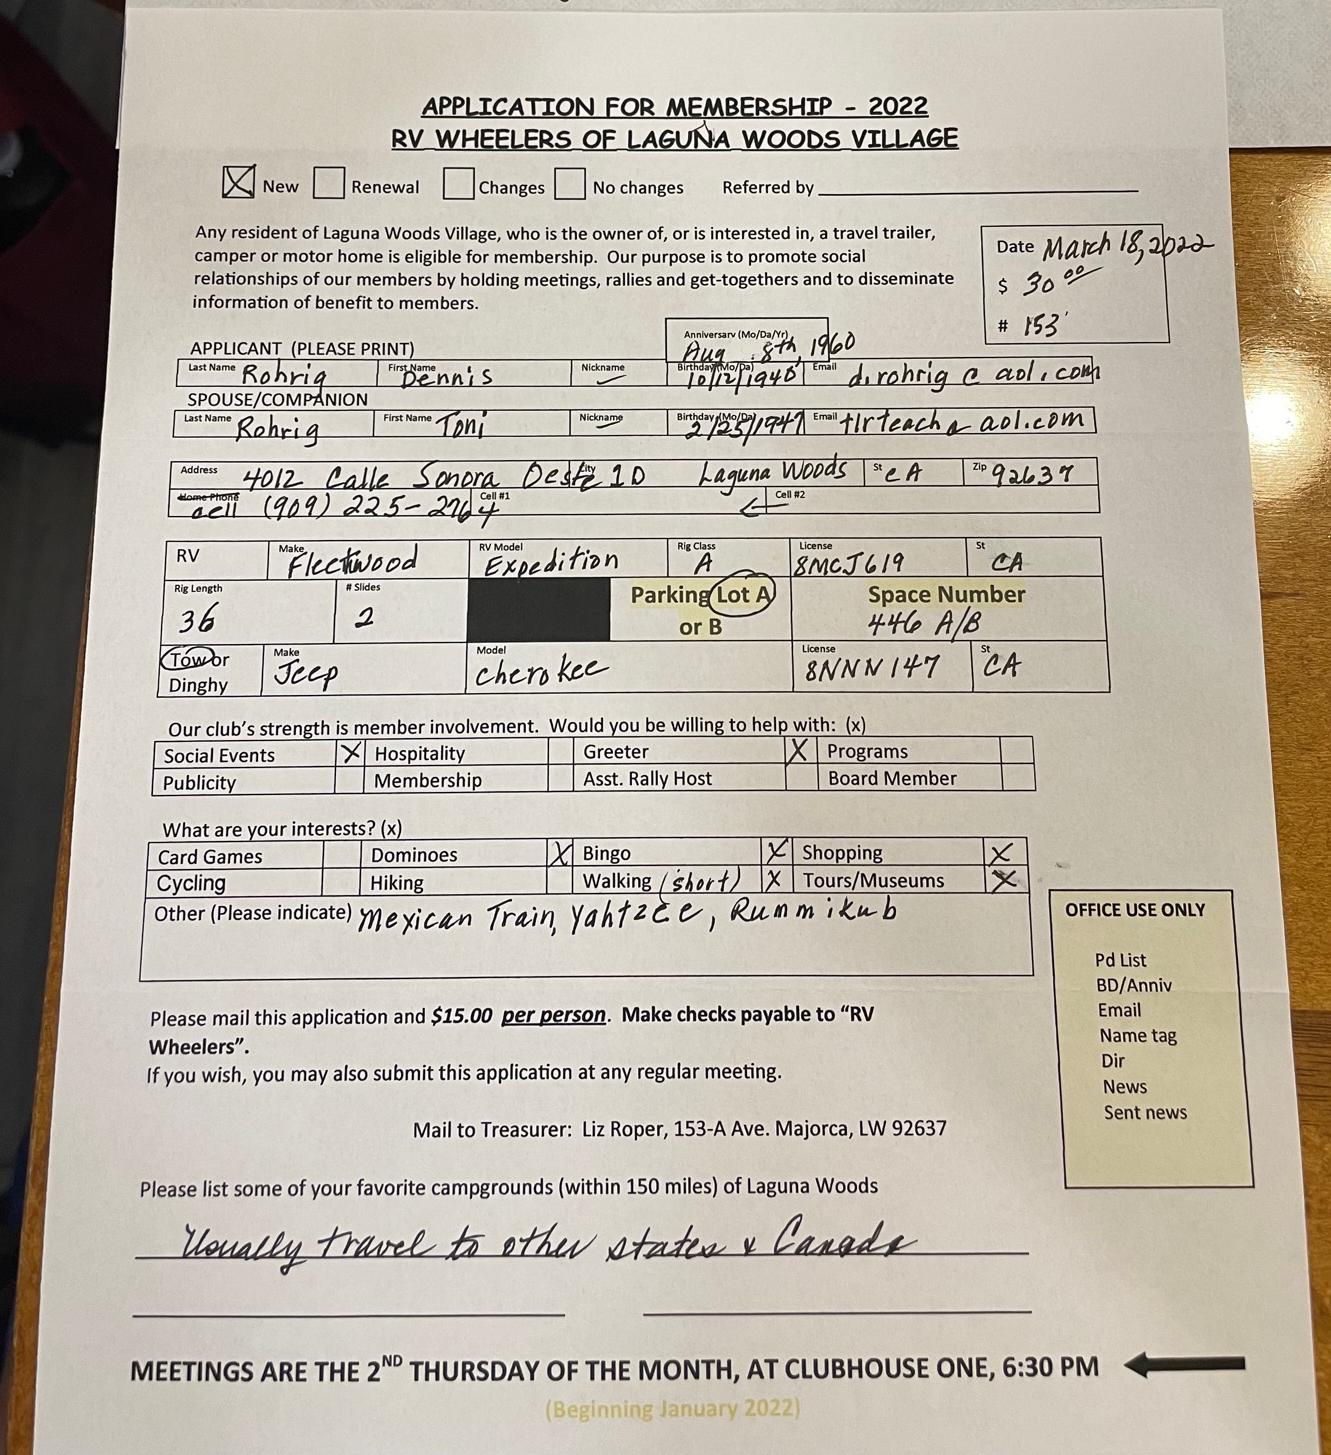 APPLICATION FOR MEMBERSHIP - 2022
RV WHEELERS OF LAGUNA WOODS VILLAGE
New Renewal Changes No changes Referred by
Any resident of Laguna Woods Village, who is the owner of, or is interested in, a travel trailer,
camper or motor home is eligible for membership. Our purpose is to promote social
relationships of our members by holding meetings, rallies and get-togethers and to disseminate
information of benefit to members.
Date March 18, 2022
$ 30 00
# 153
Anniversary (Mo/Da/Yr)
Aug. 8th, 1960
APPLICANT (PLEASE PRINT)
Last Name Rohrig First Name Dennis Nickname Birthday (Mo/Da) 10/12/1940 Email d.rohrig@aol.com
SPOUSE/COMPANION
Last Name Rohrig First Name Toni Nickname Birthday (Mo/Da) 2/25/1947 Email tlrteach@aol.com
Address 4012 Calle Sonora Oeste 1D City Laguna Woods St CA Zip 92637
Home Phone cell (909) 225-2764 Cell #1 Cell #2
RV Make Fleetwood RV Model Expedition Rig Class A License 8MCJ619 St CA
Rig Length 36 # Slides 2 Parking Lot A or B Space Number 446 A/B
Tow or Dinghy Make Jeep Model Cherokee License 8NNN147 St CA
Our club's strength is member involvement. Would you be willing to help with: (x)
Social Events X Hospitality Greeter X Programs
Publicity Membership Asst. Rally Host Board Member
What are your interests? (x)
Card Games Dominoes X Bingo X Shopping X
Cycling Hiking Walking (short) X Tours/Museums X
Other (Please indicate) Mexican Train, Yahtzee, Rummikub
OFFICE USE ONLY
Pd List
BD/Anniv
Email
Name tag
Dir
News
Sent news
Please mail this application and $15.00 per person. Make checks payable to "RV
Wheelers".
If you wish, you may also submit this application at any regular meeting.
Mail to Treasurer: Liz Roper, 153-A Ave. Majorca, LW 92637
Please list some of your favorite campgrounds (within 150 miles) of Laguna Woods
Usually travel to other states & Canada
MEETINGS ARE THE 2ND THURSDAY OF THE MONTH, AT CLUBHOUSE ONE, 6:30 PM
(Beginning January 2022)